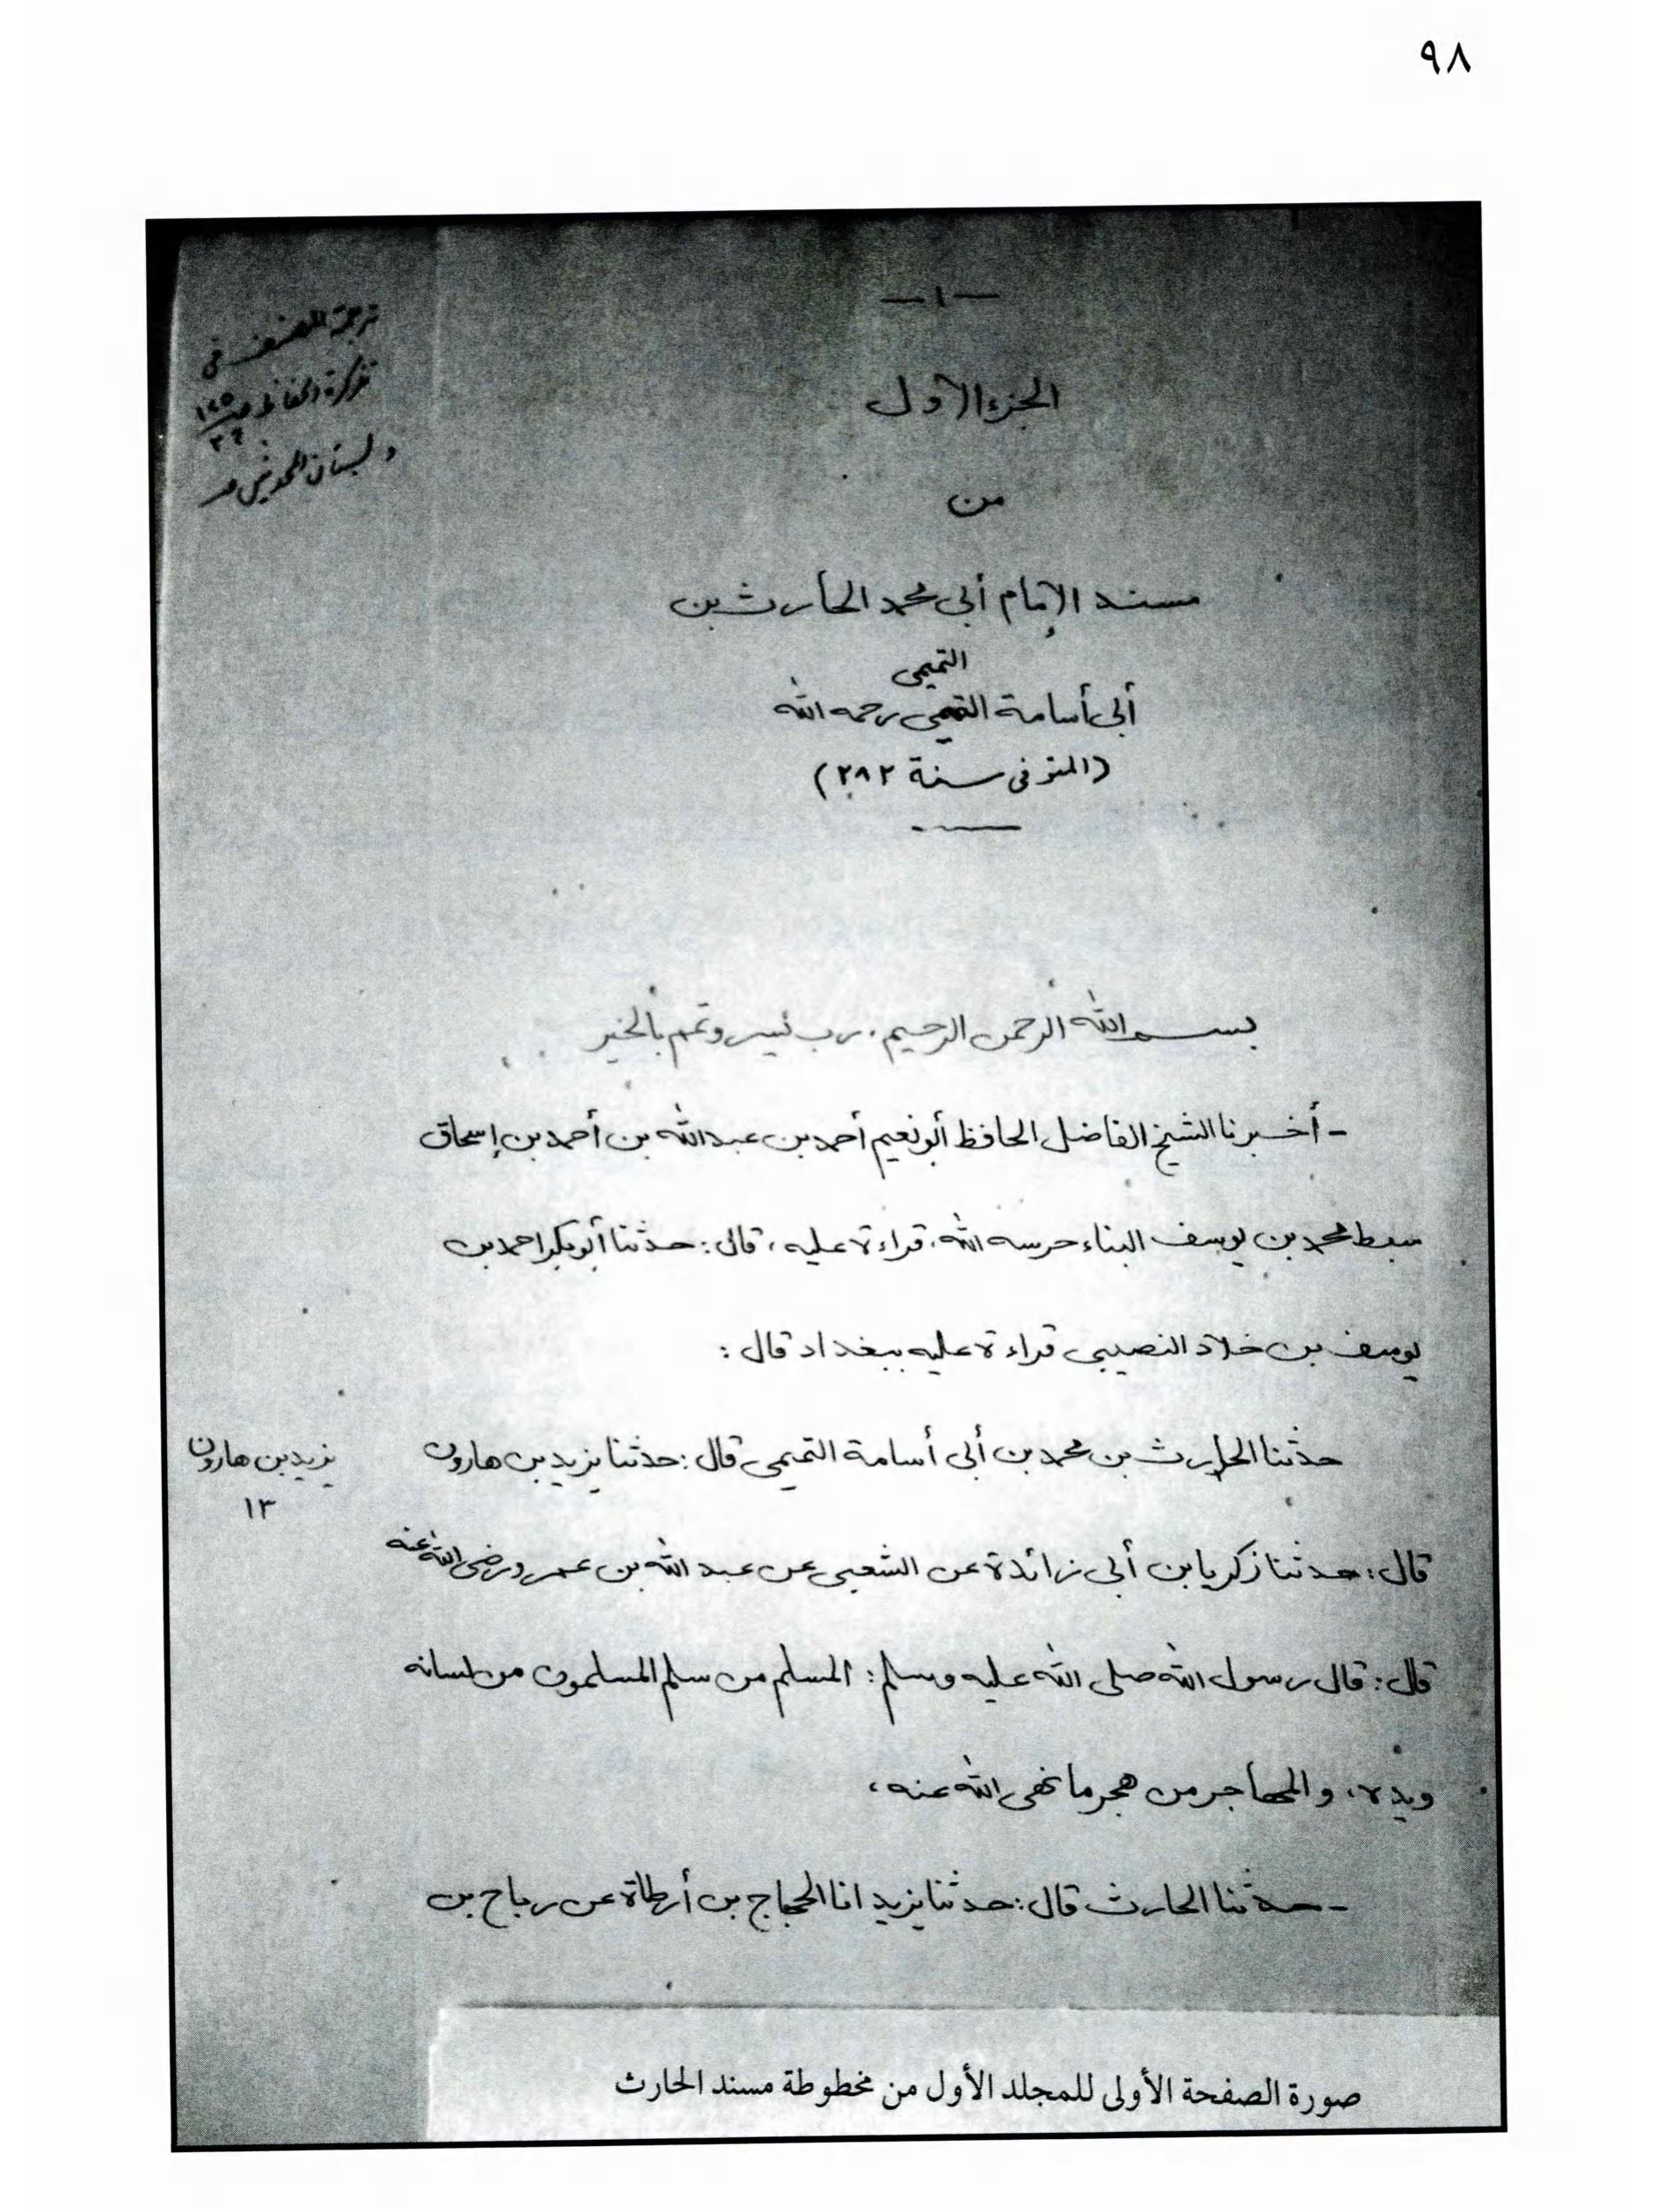 ٩٨
— ١ —
ترجمة المصنف في
تذكرة الحفاظ صـ
و بستان المحدثين صـ
الجزء الأول
من
مسند الإمام أبي محمد الحارث بن
التميمي
أبي أسامة التميمي رحمه الله
(المتوفى سنة ٢٨٢)
بسم الله الرحمن الرحيم . رب يسر وتمم بالخير
- أخبرنا الشيخ الفاضل الحافظ أبو نعيم أحمد بن عبد الله بن أحمد بن إسحاق
سبط محمد بن يوسف البناء حرسه الله، قراءة عليه، قال: حدثنا أبو بكر احمد بن
يوسف بن خلاد النصيبي قراءة عليه ببغداد قال :
حدثنا الحارث بن محمد بن أبي أسامة التميمي قال: حدثنا يزيد بن هارون
يزيد بن هارون
١٣
قال: حدثنا زكريا بن أبي زائدة عن الشعبي عن عبد الله بن عمرو رضي الله عنه
قال: قال رسول الله صلى الله عليه وسلم: المسلم من سلم المسلمون من لسانه
ويده، والمهاجر من هجر ما نهى الله عنه،
- حدثنا الحارث قال: حدثنا يزيد انا الحجاج بن أرطاة عن رباح بن
صورة الصفحة الأولى للمجلد الأول من مخطوطة مسند الحارث